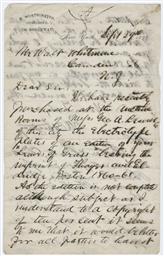 R. WORTHINGTON,
770 BROADWAY.
New York Sept 29th 1880
Mr Walt Whitman
Camden
N. J.
Dear Sir
I have recently
purchased at the Auction
Rooms of Messrs Geo A Leavitt
of this city the Electrotype
plates of an edition of your
Leaves of Grass bearing the
imprint of Thayer and El-
dridge Boston 1860-61.
As the edition is not complete
although subject as I
understand to a Copyright
of ten per cent it seems
to me that it would be better
for all parties to have it